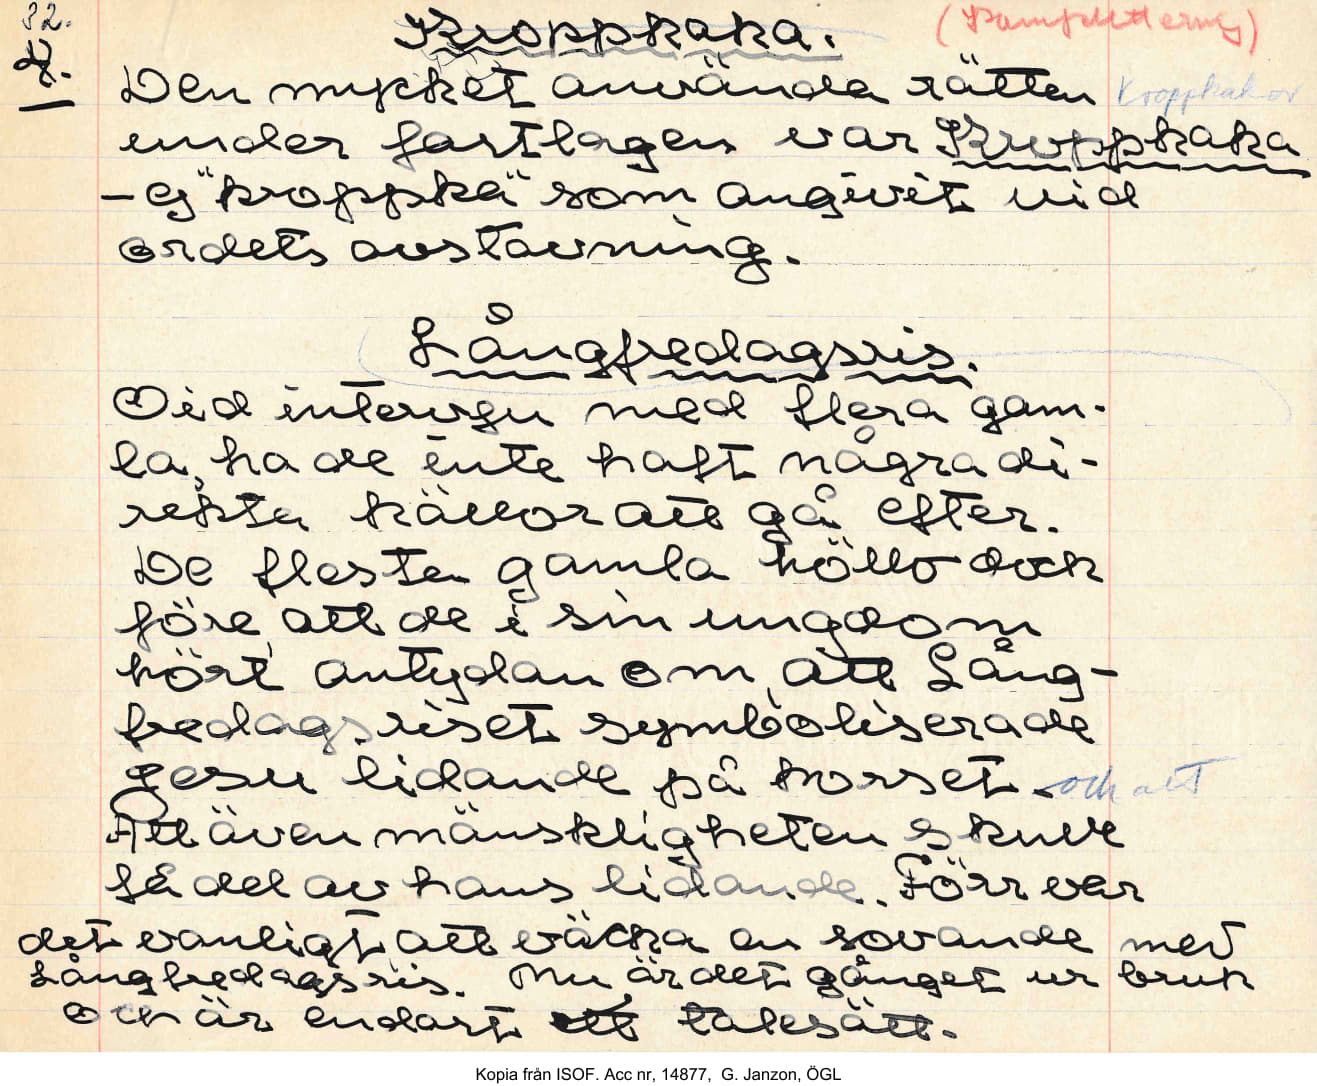 32.
Kroppkaka.
(Komplettering)
Den mycket använda rätten
Kroppkakor
under fastlagen var Kroppkaka
– ej "kroppka" som angivit vid
ordets avstavning.
Långfredagsris.
Vid intervju med flera gam-
la, ha de inte haft några di-
rekta källor att gå efter.
De flesta gamla höllo dock
före, att de i sin ungdom
hört antydan om, att Lång-
fredagsriset symboliserade
Jesu lidande på korset. och att
Att även mänskligheten skulle
få del av hans lidande. Förr var
det vanligt, att väcka en sovande med
Långfredagsris. Nu är det gånget ur bruk
och är endast ett talesätt.
Kopia från ISOF. Acc nr, 14877, G. Janzon, ÖGL